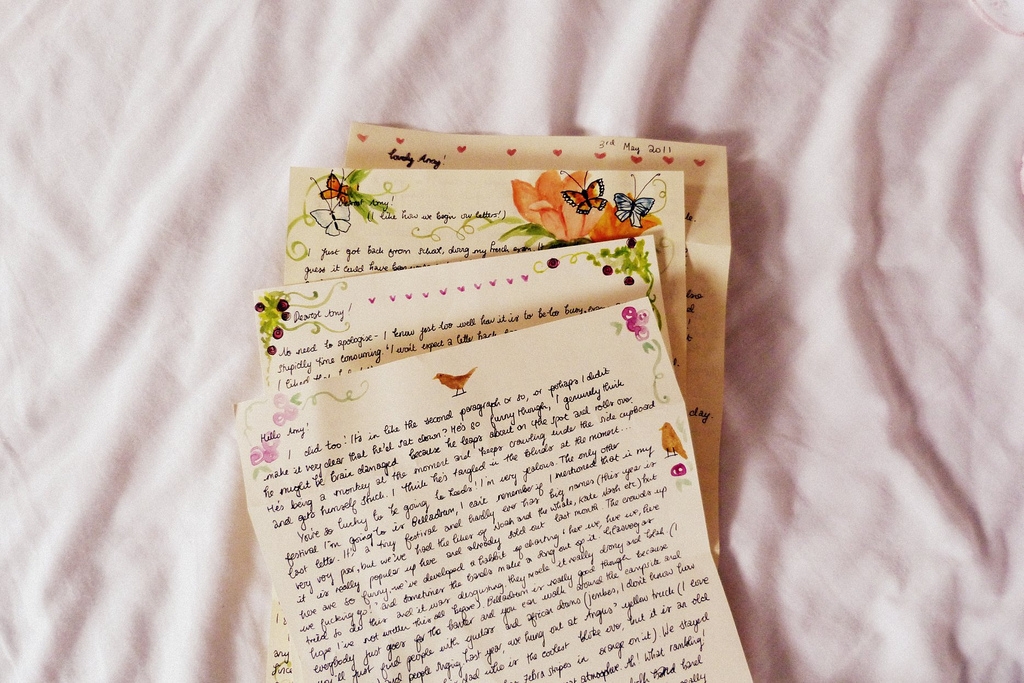 3rd May 2011
Lovely Amy!
Dearest Amy!
(I like how we begin our letters!)
I just got back from school, doing my french exam. I
guess it could have been
Dearest Amy!
No need to apologise - I know just too well how it is to be too busy.
stupidly time consuming. I won't expect a letter back
day.
Hello Amy!
I did too! It's in like the second paragraph or so, or perhaps I didn't
make it very clear that he'd sat down? He's so funny though, I genuinely think
he might be brain damaged because he leaps about on the spot and rolls over.
He's being a monkey at the moment and keeps crawling under the side cupboard
and gets himself stuck. I think he's tangled in the blinds at the moment...
You're so lucky to be going to Leeds! I'm very jealous. The only other
festival I'm going to is Belladrum, I can't remember if I mentioned that in my
last letter. It's a tiny festival and hardly ever has big names (this year is
very very poor, but we've had the likes of Noah and the Whale, Kate Nash etc) but
it is really popular up here and already sold out last month. The crowds up
here are so funny, we've developed a habit of chanting 'here we, here we, here
we fucking go!' and sometimes the bands make a song out of it.
tried to do this and it was disgusting, they made it really droney and bleak (I
hope I've not written this all before). Belladrum is really good though because
everybody just goes for the banter and you can walk around the campsite and
you'll just find people with guitars and african drums (jembes, I don't know how
and people singing. Last year, we hung out at Angus' yellow truck (I love
dad who is the coolest bloke ever, but it is an old
zebra stripes in orange on it). We stayed
atmosphere. Ah! What rambling!